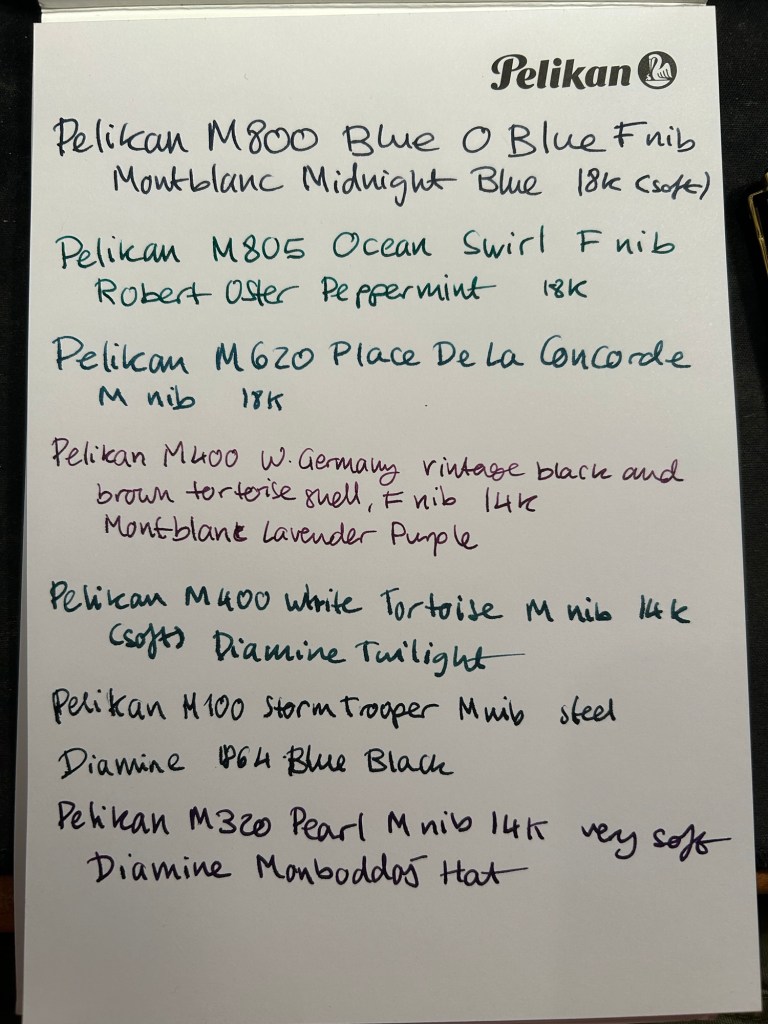 Pelikan
Pelikan M800 Blue O Blue F nib
Montblanc Midnight Blue 18K (soft)
Pelikan M805 Ocean Swirl F nib
Robert Oster Peppermint 18K
Pelikan M620 Place De La Concorde
M nib 18K
Pelikan M400 W. Germany vintage black and
brown tortoise shell, F nib 14K
Montblanc Lavender Purple
Pelikan M400 White Tortoise M nib 14K
(soft) Diamine Twilight
Pelikan M100 Storm Trooper M nib steel
Diamine 1864 Blue Black
Pelikan M320 Pearl M nib 14K very soft
Diamine Monboddo's Hat